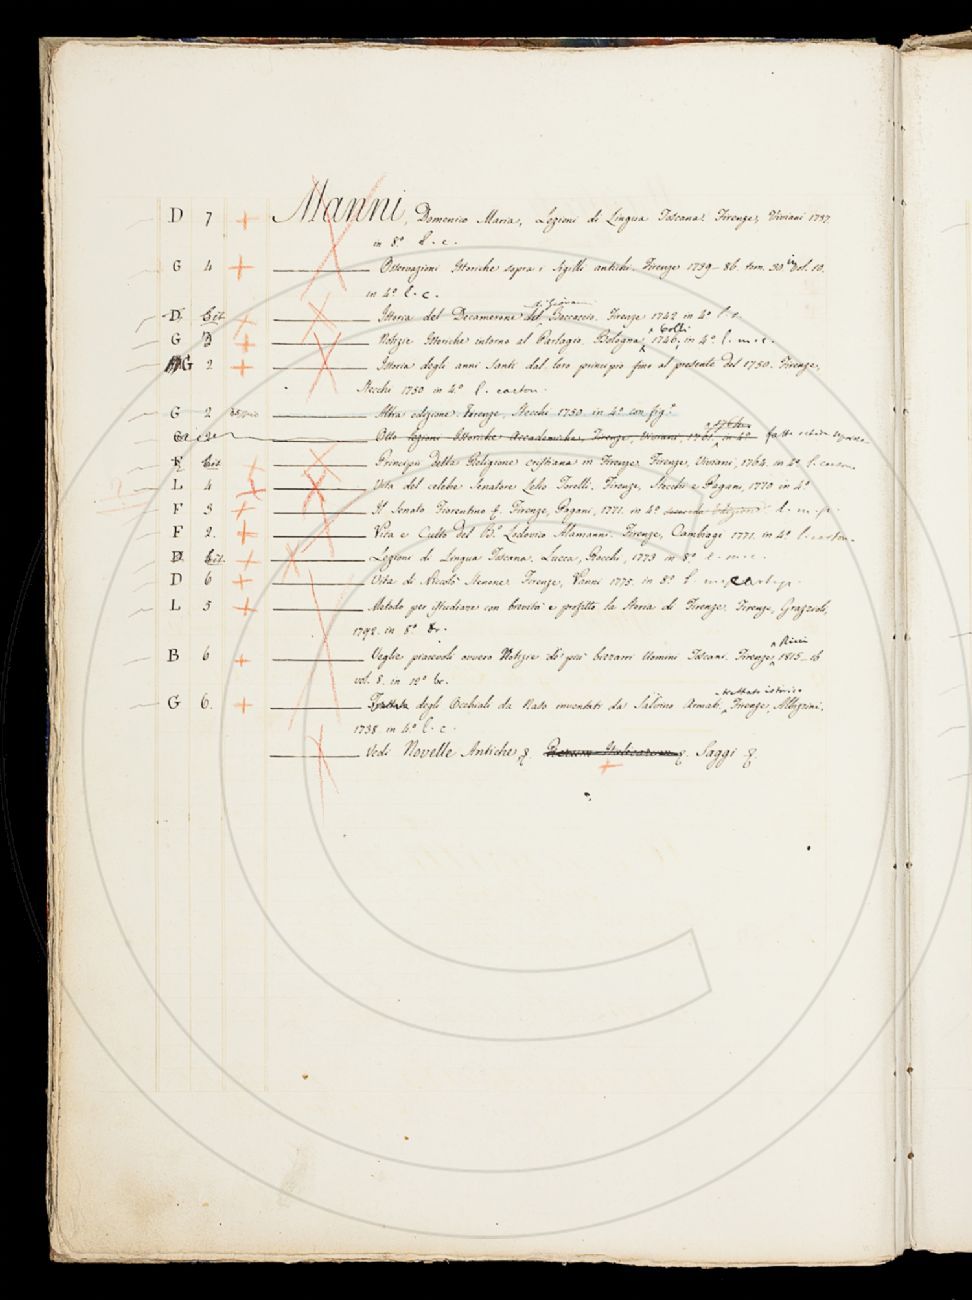 D 7 + Manni, Domenico Maria, Lezioni di Lingua Toscana. Firenze, Viviani 1737
in 8.º l. c.
G 4 + Osservazioni Istoriche sopra i Sigilli antichi. Firenze 1739-86. tom. 30 in vol. 10.
in 4º l. c.
D. + Istoria del Decamerone del Boccaccio. Firenze 1742 in 4º
di Giovanni
G 3 + Notizie Istoriche intorno al Parlagio. Bologna, 1746, in 4.º
G 2 + Istoria degli anni Santi dal loro principio fino al presente del 1750. Firenze,
Stecchi 1750 in 4º l. carton.
G 2 Altra edizione. Firenze, Stecchi 1750 in 4º con fig.º
Otto Lezioni Istoriche Accademiche, Firenze, Viviani, 1761 in 4º
F Principii della Religione cristiana in Firenze. Firenze, Viviani, 1764. in 4º l. carton.
L 4 Vita del celebre Senatore Lelio Torelli. Firenze, Stecchi e Pagani, 1770 in 4º
F 3 + Il Senato Fiorentino &. Firenze, Pagani, 1771. in 4º
F 2. + Vita e Culto del B.º Lodovico Alamanni. Firenze, Cambiagi 1771. in 4º l. carton.
D. + Lezioni di Lingua Toscana. Lucca, Rocchi, 1773 in 8º
D 6 + Vita di Niccolò Stenone. Firenze, Vanni 1775. in 8º
L 5 + Metodo per istudiare con brevità e profitto la Storia di Firenze. Firenze, Grazioli,
1792. in 8º br.
B 6 + Veglie piacevoli ovvero Notizie de' più bizzarri Uomini Toscani. Firenze, 1815-16
Ricci
vol. 8. in 12º br.
G 6. + degli Occhiali da Naso inventati da Salvino Armati. Firenze, Albizzini.
trattato istorico
1738. in 4º l. c.
Vedi Novelle Antiche, &. &. Saggi &.
+